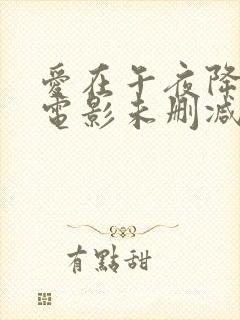 愛在午夜降
電影未刪減
有點甜